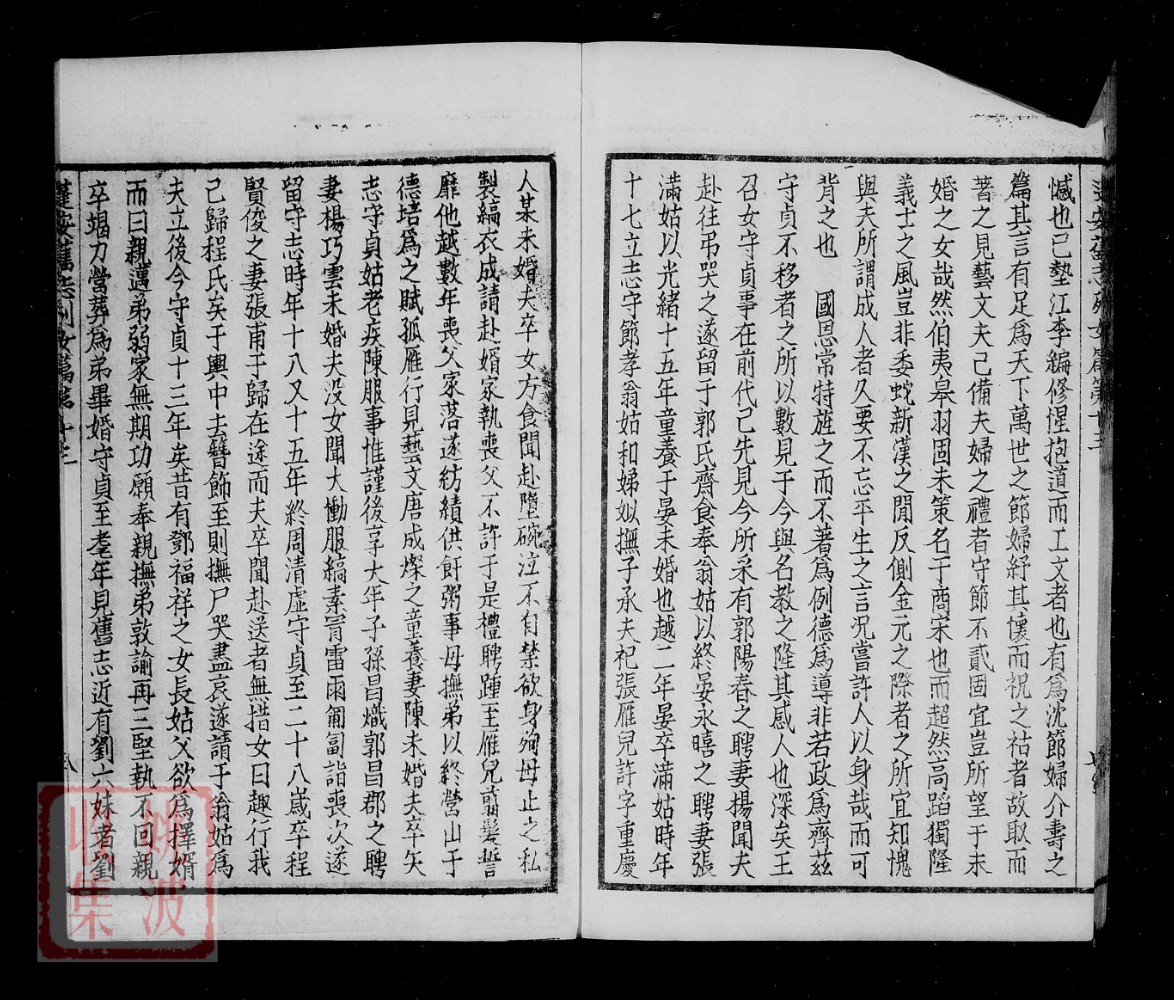 憾也已墊江李編修惺抱道而工文者也有爲沈節婦介壽之
篇其言有足爲天下萬世之節婦紓其懷而祝之祜者故取而
著之見藝文夫已備夫婦之禮者守節不貳固宜豈所望于未
婚之女哉然伯夷皋羽固未策名于商宋也而超然高蹈獨隆
義士之風豈非委蛇新漢之閒反側金元之際者之所宜知愧
與夫所謂成人者久要不忘平生之言况嘗許人以身哉而可
背之也 國恩常特旌之而不著爲例德爲導非若政爲齊茲
守貞不移者之所以數見于今與名教之隆其感人也深矣王
召女守貞事在前代已先見今所采有郭陽春之聘妻楊聞夫
赴往弔哭之遂留于郭氏齋食奉翁姑以終晏永暿之聘妻張
滿姑以光緒十五年童養于晏未婚也越二年晏卒滿姑時年
十七立志守節孝翁姑和娣姒撫子承夫祀張雁兒許字重慶
人某未婚夫卒女方食聞赴墮碗泣不自禁欲身殉母止之私
製縞衣成請赴婚家執喪父不許于是禮聘踵至雁兒翦髮誓
靡他越數年喪父家落遂紡績供飦粥事母撫弟以終營山于
德培爲之賦孤雁行見藝文唐成燦之童養妻陳未婚夫卒矢
志守貞姑老疾陳服事惟謹後享大年子孫昌熾郭昌郡之聘
妻楊巧雲未婚夫没女聞大慟服縞素冐雷雨匍匐詣喪次遂
留守志時年十八又十五年終周清虚守貞至二十八嵗卒程
賢俊之妻張甫于歸在途而夫卒聞赴送者無措女曰趣行我
已歸程氏矣于輿中去簪飾至則撫尸哭盡哀遂請于翁姑爲
夫立後今守貞十三年矣昔有鄧福祥之女長姑父欲爲擇婿
而曰親邁弟弱家無期功願奉親撫弟敦諭再三堅執不回親
卒竭力營葬爲弟畢婚守貞至耄年見舊志近有劉六妹者劉
八
姚波
收集